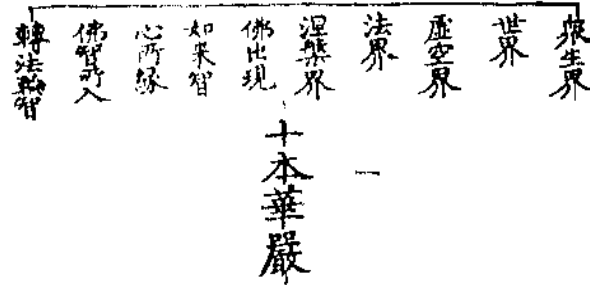 衆生界
世界
虛空界
法界
涅槃界
佛出現
如来智
心所緣
佛智所入
轉法輪智
十本華嚴